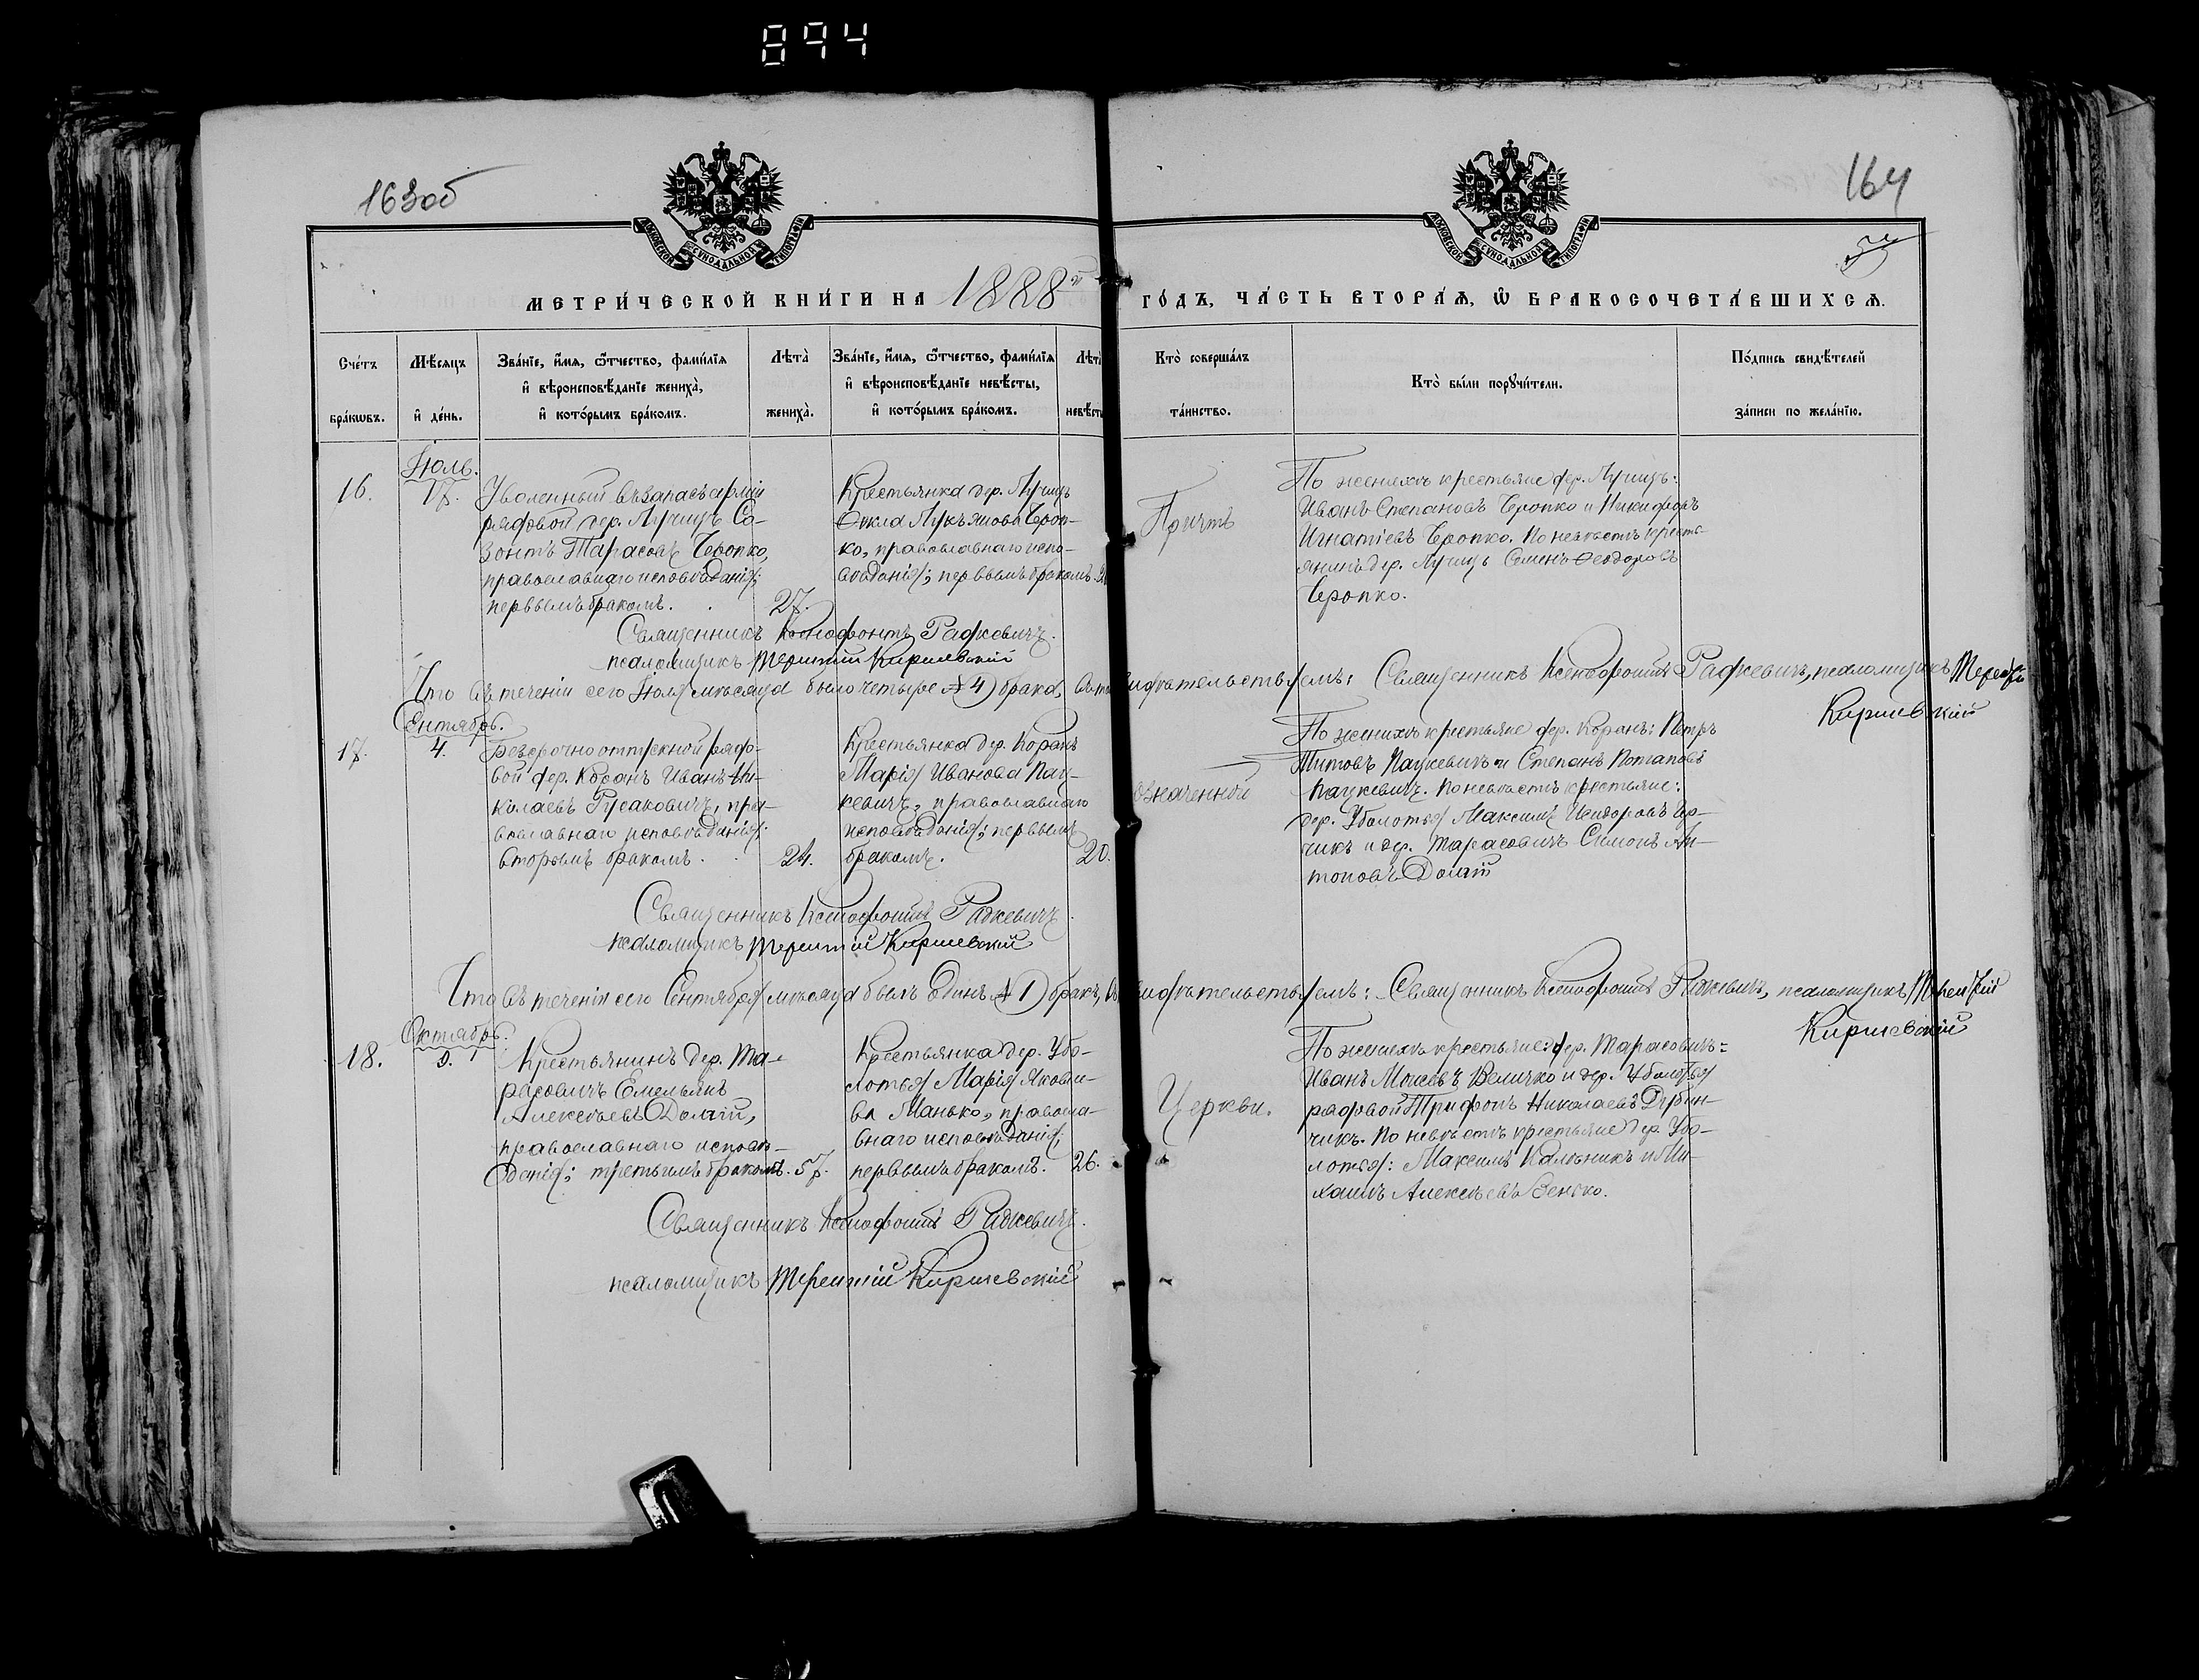 894
163об
164
МОСКОВСКОЙ СѴНОДАЛЬНОЙ ТИПОГРАФІИ
МОСКОВСКОЙ СѴНОДАЛЬНОЙ ТИПОГРАФІИ
МЕТРИ́ЧЕСКОЙ КНИ́ГИ НА 1888й
ГО́ДЪ, ЧА́СТЬ ВТОРА́Ѧ, Ѽ БРАКОСОЧЕТА́ВШИХСѦ.
Сче́тъ бра́кѡвъ.
Мѣ́сяцъ и҆ де́нь.
Зва́нїе, и҆́мѧ, ѻ҆́тчество, фами́лїѧ
и҆ вѣроисповѣ́данїе жениха̀,
и҆ кото́рымъ бра́комъ.
Лѣ́та̀ жениха̀.
Зва́нїе, и҆́мѧ, ѻ҆́тчество, фами́лїѧ
и҆ вѣроисповѣ́данїе невѣ́сты,
и҆ кото́рымъ бра́комъ.
Лѣта̀ невѣ́сты
Кто̀ соверша́лъ та́инство.
Кто̀ бы́ли порꙋчи́тели.
По́дпись свидѣ́телей
за́писи по жела́нїю.
Іюль.
16.
17.
Уволенный въ запасъ арміи
рядовой дер. Лучицъ Со-
зонтъ Тарасовъ Черопко,
православнаго исповѣданія;
первымъ бракомъ.
27.
Крестьянка дер. Лучицъ
Ѳекла Лукьянова Чероп-
ко, православнаго испо-
вѣданія; первымъ бракомъ.
Причтъ
По женихѣ крестьяне дер. Лучицъ:
Иванъ Степановъ Черопко и Никифоръ
Игнатіевъ Черопко. По невѣстѣ кресть-
янинъ дер. Лучицъ Семенъ Ѳеодоровъ
Черопко.
Священникъ Ксенофонтъ Радкевичъ.
псаломщикъ Терентій Киршевскій
Что въ теченіи сего Іюля мѣсяца было четыре (№ 4) брака, въ томъ свидѣтельствуемъ: Священникъ Ксенофонтъ Радкевичъ, псаломщикъ Терентій
Киршевскій
Сентябрь.
17.
4.
Безсрочноотпускной рядо-
вой дер. Коранъ Иванъ Ни-
колаевъ Русаковичъ, пра-
вославнаго исповѣданія;
вторымъ бракомъ.
24.
Крестьянка дер. Коранъ
Марія Иванова Пац-
кевичъ, православнаго
исповѣданія; первымъ
бракомъ.
20.
означенной
По женихѣ крестьяне дер. Коранъ: Петръ
Титовъ Пацкевичъ и Степанъ Потаповъ
Пацкевичъ. По невѣстѣ крестьяне:
дер. Уболотья Максимъ Исидоровъ
и дер. Тарасовичъ Симонъ Ан-
тоновъ Долгій
Священникъ Ксенофонтъ Радкевичъ
псаломщикъ Терентій Киршевскій
Что въ теченіи сего Сентября мѣсяца былъ одинъ (№ 1) бракъ, въ томъ свидѣтельствуемъ: Священникъ Ксенофонтъ Радкевичъ, псаломщикъ Терентій
Киршевскій
Октябрь.
18.
9.
Крестьянинъ дер. Та-
расовичъ Емельянъ
Алексѣевъ Долгій,
православнаго исповѣ-
данія; третьимъ бракомъ.
57.
Крестьянка дер. Убо-
лотья Марія Яковле-
ва Манько, правосла-
внаго исповѣданія;
первымъ бракомъ.
26.
Церкви.
По женихѣ крестьяне: дер. Тарасовичъ:
Иванъ Моисеевъ Величко и дер. Уболотья
рядовой Трифонъ Николаевъ Дубин-
чикъ. По невѣстѣ крестьяне дер. Убо-
лотья: Максимъ Калѣникъ и Ми-
хаилъ Алексѣевъ Венько.
Священникъ Ксенофонтъ Радкевичъ.
псаломщикъ Терентій Киршевскій